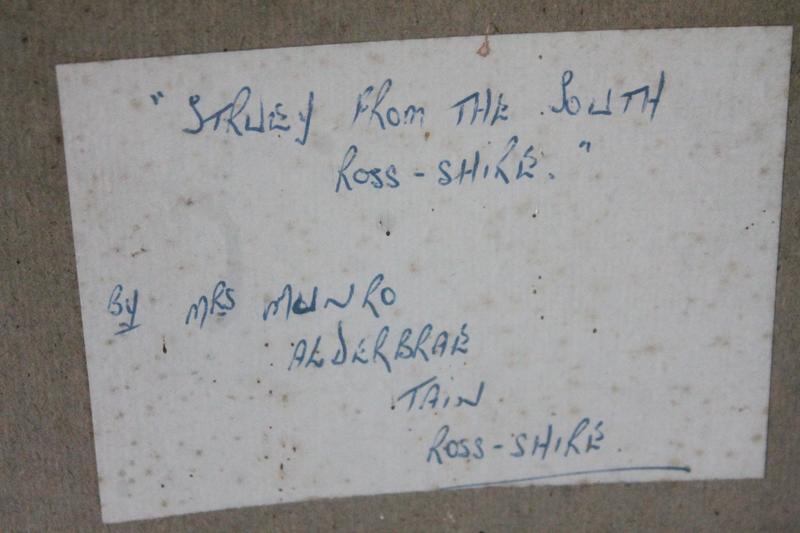 "STRUEY FROM THE SOUTH
ROSS-SHIRE."
By MRS MUNRO
ALDERBRAE
TAIN
ROSS-SHIRE